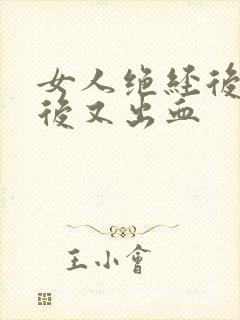 女人绝经後
後又出血
王小會